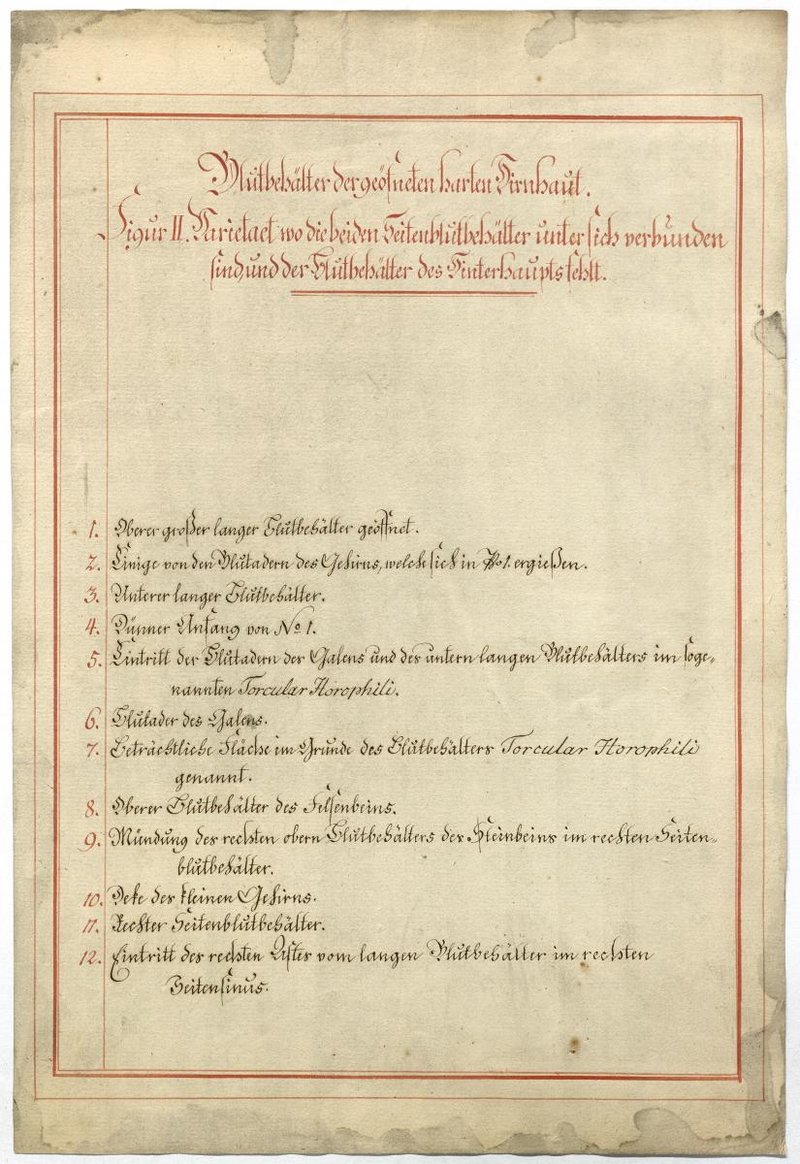 Blutbehälter der geöfneten harten Hirnhaut.
Figur II. Varietaet wo die beiden Seitenblutbehälter unter sich verbunden
sind, und der Blutbehälter des Hinterhaupts fehlt.
1. Oberer großer langer Blutbehälter geöffnet.
2. Einige von den Blutadern des Gehirns, welche sich in No 1. ergießen.
3. Unterer langer Blutbehälter.
4. Dünner Anfang von No 1.
5. Eintritt der Blutadern des Galens und des untern langen Blutbehälters im soge=
nannten Torcular Horophili.
6. Blutader des Galens.
7. Beträchtliche Fläche im Grunde des Blutbehälters Torcular Horophili
genannt.
8. Oberer Blutbehälter des Felsenbeins.
9. Mündung des rechten obern Blutbehälters des Steinbeins im rechten Seiten=
blutbehälter.
10. Deke des kleinen Gehirns.
11. Rechter Seitenblutbehälter.
12. Eintritt des rechten Astes vom langen Blutbehälter im rechten
Seitensinus.